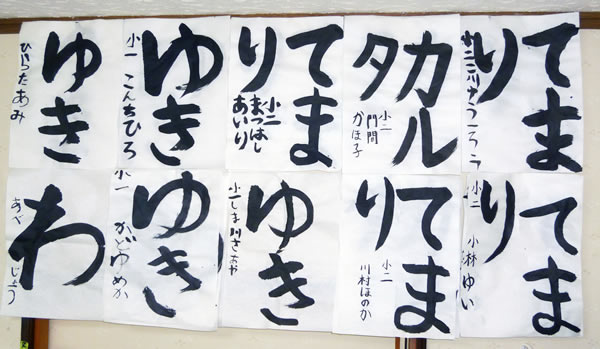 てま
り
小二
カル
タ
小二
門間
かほ子
てま
り
小二
まつはし
あいり
ゆき
小一 こんちひろ
ゆき
ひらたあみ
てま
り
小二 小林ゆい
てま
り
小二
川村ほのか
ゆき
小一 しま川さあや
ゆき
小一
かどゆめか
わ
あべ
じょう